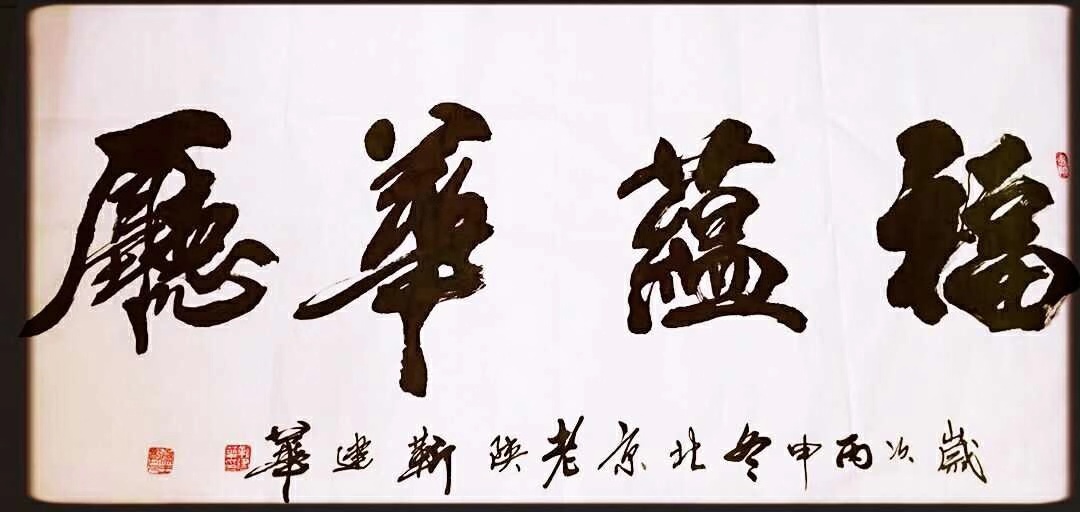 福蘊華廳
歲次丙申冬北京老陝靳建華